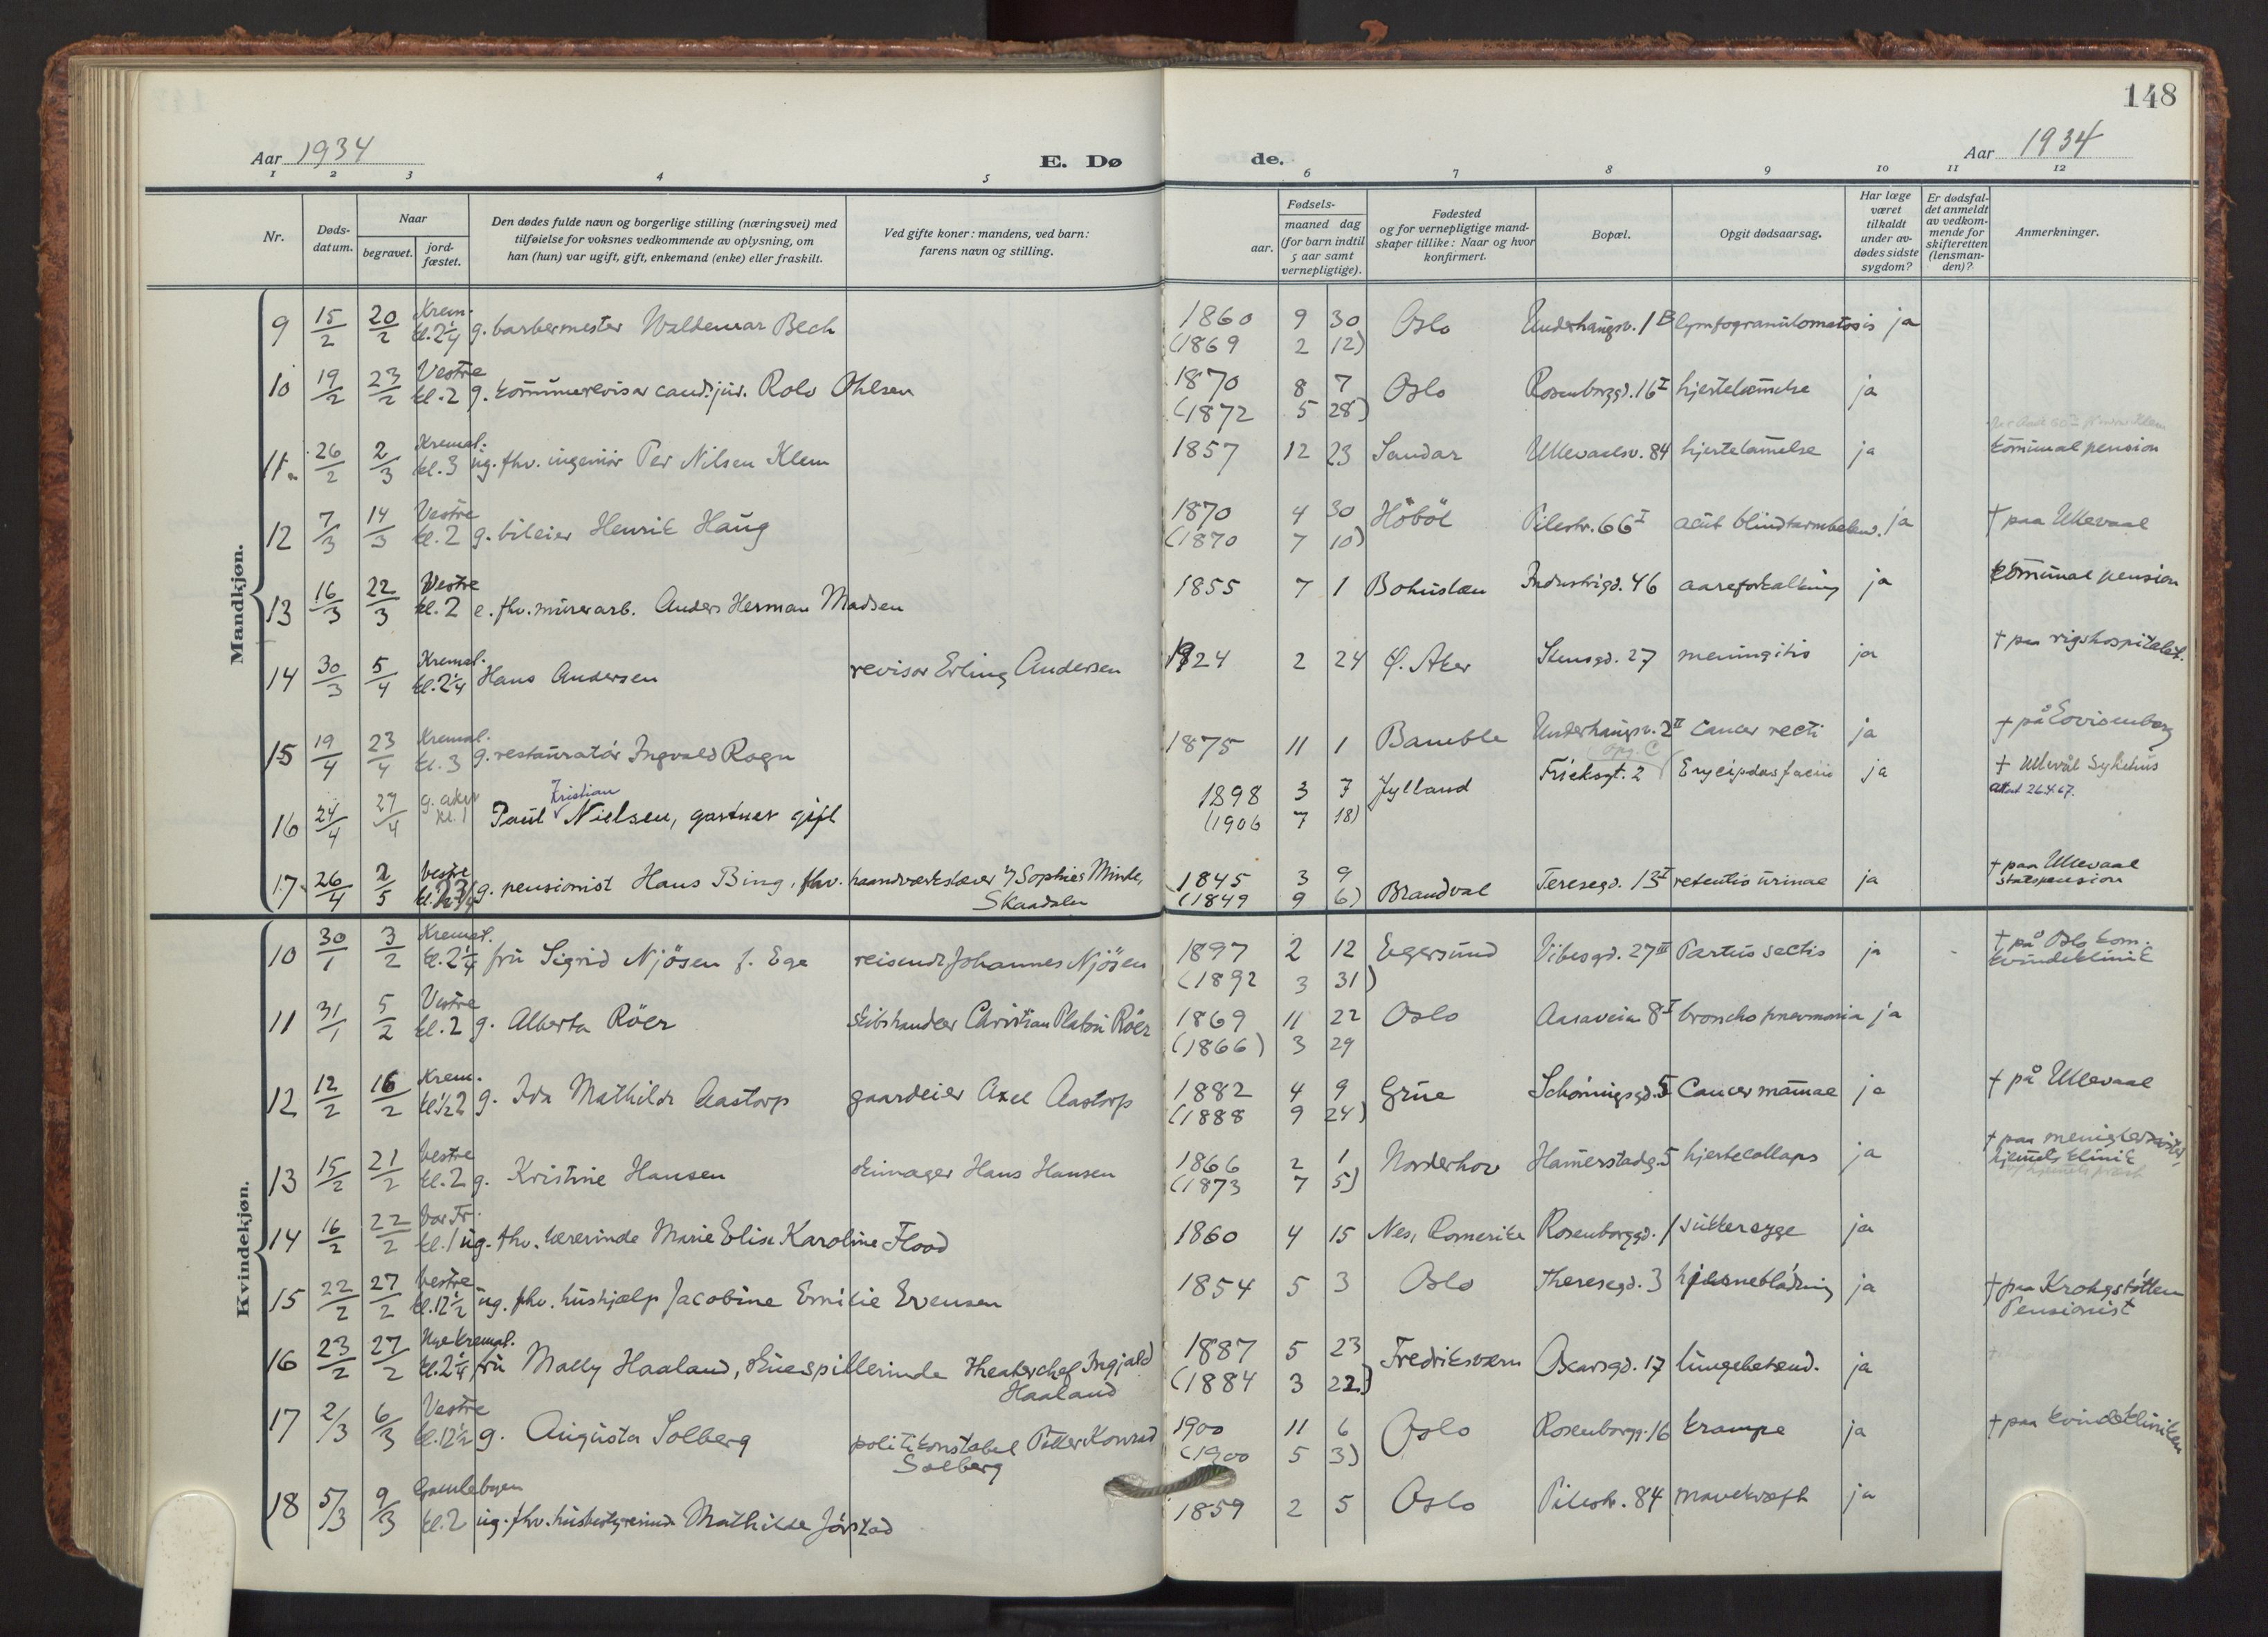 148
Aar 1934 E. Dø de. Aar 1934
1 2 3 4 5 6 7 8 9 10 11 12
Nr.
Døds-
datum.
Naar
begravet.
jord-
fæstet.
Den dødes fulde navn og borgerlige stilling (næringsvei) med
tilføielse for voksnes vedkommende av oplysning, om
han (hun) var ugift, gift, enkemand (enke) eller fraskilt.
Ved gifte koner: mandens, ved barn:
farens navn og stilling.
Fødsels-
aar.
maaned dag
(for barn indtil
5 aar samt
vernepligtige).
Fødested
og for vernepligtige mand-
skaper tillike: Naar og hvor
konfirmert.
Bopæl.
Opgit dødsaarsag.
Har læge
været
tilkaldt
under av-
dødes sidste
sygdom?
Er dødsfal-
det anmeldt
av vedkom-
mende for
skifteretten
(lensman-
den)?
Anmerkninger.
Mandkjøn.
9 15/2 20/2 Krem. kl. 2¼ g. barbermester Waldemar Bech 1860 9 30 Oslo Underhaugsv. 1 B lymfogranulomatosis ja
(1869 2 12)
10 19/2 23/2 Vestre kl. 2 g. kommunerevisor cand. jur. Rolv Ohlsen 1870 8 7 Oslo Rosenborggd. 16 I hjertelamelse ja
(1872 5 28)
11 26/2 2/3 Kremat. kl. 3 ug. fhv. ingeniør Per Nilsen Klem 1857 12 23 Sandar Ullevaalsv. 84 hjertelamelse ja komunal pension
12 7/3 14/3 Vestre kl. 2 g. bileier Henrik Haug 1870 4 30 Høbøl Pilestr. 66 I acut blindtarmbetend. ja † paa Ullevaal
(1870 7 10)
13 16/3 22/3 Vestre kl. 2 e. fhv. murerarb. Anders Herman Madsen 1855 7 1 Bohuslæn Industrigd. 46 aareforkalkning ja komunal pension
14 30/3 5/4 Kremat. kl. 2¼ Hans Andersen revisor Erling Andersen 1924 2 24 Ø. Aker Stensgd. 27 meningitis ja † paa rigshospitalet.
15 19/4 23/4 Kremat. kl. 3 g. restauratør Ingvald Rogn 1875 11 1 Bamble Underhaugsv. 2 II cancer recti ja † på Lovisenberg
opg. C
16 24/4 27/4 g. aker kl. 1 Paul Kristian Nielsen, gartner gift 1898 3 7 Jylland Fricksgt. 2 Erycipelas faciei ja † Ullevål Sykehus
(1906 7 18) attest 26.4.67.
17 26/4 2/5 Vestre g. pensionist Hans Bing, fhv. haandverkslærer v/ Sophies Minde, 1845 3 9 Brandval Teresegd. 13 I retentio urinae ja † paa Ullevaal
Skaadalen (1849 9 6) statspension
Kvindekjøn.
10 30/1 3/2 Kremat. kl. 2¼ fru Sigrid Njøsen f. Ege reisende Johannes Njøsen 1897 2 12 Egersund Vibesgd. 27 III Partus sectio ja † på Oslo kom.
(1892 3 31) kvindeklinik
11 31/1 5/2 Vestre kl. 2 g. Alberta Røer skibshandler Christian Platou Røer 1869 11 22 Oslo Aasaveien 8 I broncho pneumonia ja
(1866) 3 29
12 12/2 16/2 Krem. kl. ½2 g. Ida Mathilde Aastorp gaardeier Axel Aastorp 1882 4 9 Grue Schøningsgd. 5 Cancer mamae ja † på Ullevaal
(1888 9 24)
13 15/2 21/2 Vestre kl. 2 g. Kristine Hansen skimager Hans Hansen 1866 2 1 Norderhov Hamerstadg. 5 hjertecollaps ja † paa menighetssøster-
(1873 7 5) hjemets klinik
14 16/2 22/2 Vor Fr. kl. 1 ug. fhv. lærerinde Marie Elise Karoline Flood 1860 4 15 Nes, Romerike Rosenborggd. 1 sukkersyge ja
15 22/2 27/2 Vestre kl. 12½ ug. fhv. hushjælp Jacobine Emilie Evensen 1854 5 3 Oslo Theresegd. 3 hjerneblødning ja † paa Krohgstøtten
Pensionist
16 23/2 27/2 Nye kremat. kl. 2¼ fru Mally Haaland, skuespillerinde Theaterchef Ingjald 1887 5 23 Fredriksværn Oscarsgd. 17 lungebetænd. ja
Haaland (1884 3 22)
17 2/3 6/3 Vestre kl. 12½ g. Augusta Solberg politikonstabel Petter Konrad 1900 11 6 Oslo Rosenborgg. 16 krampe ja † paa kvindeklinikken
Solberg (1900 5 3)
18 5/3 9/3 Gamlebyen kl. 2 ug. fhv. husbestyrerinde Mathilde Jørstad 1859 2 5 Oslo Pilestr. 84 mavekræft ja